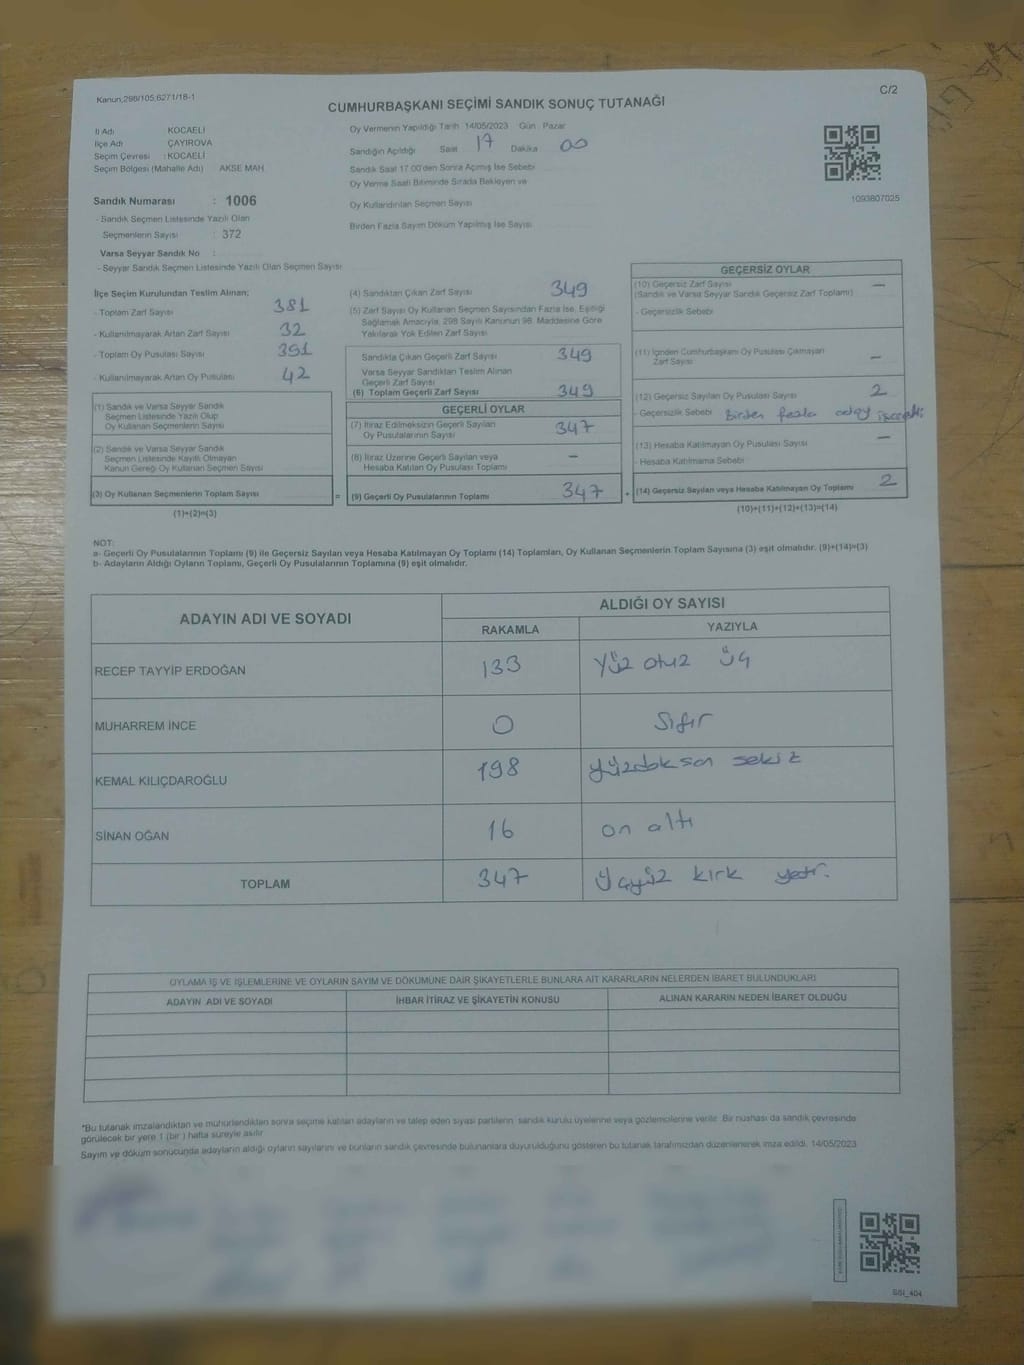 Kanun,298/105,6271/18-1
C/2
CUMHURBAŞKANI SEÇİMİ SANDIK SONUÇ TUTANAĞI
İl Adı KOCAELİ
İlçe Adı ÇAYIROVA
Seçim Çevresi : KOCAELİ
Seçim Bölgesi (Mahalle Adı) AKSE MAH
Sandık Numarası : 1006
- Sandık Seçmen Listesinde Yazılı Olan
Seçmenlerin Sayısı : 372
Varsa Seyyar Sandık No :
- Seyyar Sandık Seçmen Listesinde Yazılı Olan Seçmen Sayısı
Oy Vermenin Yapıldığı Tarih 14/05/2023 Gün Pazar
Sandığın Açıldığı Saat 17 Dakika 00
Sandık Saat 17.00'den Sonra Açılmış İse Sebebi
Oy Verme Saati Bitiminde Sırada Bekleyen ve
Oy Kullandırılan Seçmen Sayısı
Birden Fazla Sayım Döküm Yapılmış İse Sayısı
1093807025
İlçe Seçim Kurulundan Teslim Alınan;
- Toplam Zarf Sayısı 381
- Kullanılmayarak Artan Zarf Sayısı 32
- Toplam Oy Pusulası Sayısı 391
- Kullanılmayarak Artan Oy Pusulası 42
(1) Sandık ve Varsa Seyyar Sandık
Seçmen Listesinde Yazılı Olup
Oy Kullanan Seçmenlerin Sayısı
(2) Sandık ve Varsa Seyyar Sandık
Seçmen Listesinde Kayıtlı Olmayan
Kanun Gereği Oy Kullanan Seçmen Sayısı
(3) Oy Kullanan Seçmenlerin Toplam Sayısı
(1)+(2)=(3)
(4) Sandıktan Çıkan Zarf Sayısı 349
(5) Zarf Sayısı Oy Kullanan Seçmen Sayısından Fazla İse, Eşitliği
Sağlamak Amacıyla, 298 Sayılı Kanunun 98. Maddesine Göre
Yakılarak Yok Edilen Zarf Sayısı
Sandıkta Çıkan Geçerli Zarf Sayısı 349
Varsa Seyyar Sandıktan Teslim Alınan
Geçerli Zarf Sayısı
(6) Toplam Geçerli Zarf Sayısı 349
GEÇERLİ OYLAR
(7) İtiraz Edilmeksizin Geçerli Sayılan
Oy Pusulalarının Sayısı 347
(8) İtiraz Üzerine Geçerli Sayılan veya
Hesaba Katılan Oy Pusulası Toplamı –
= (9) Geçerli Oy Pusulalarının Toplamı 347
GEÇERSİZ OYLAR
(10) Geçersiz Zarf Sayısı –
(Sandık ve Varsa Seyyar Sandık Geçersiz Zarf Toplamı)
- Geçersizlik Sebebi
(11) İçinden Cumhurbaşkanı Oy Pusulası Çıkmayan
Zarf Sayısı –
(12) Geçersiz Sayılan Oy Pusulası Sayısı 2
- Geçersizlik Sebebi Birden fazla aday
(13) Hesaba Katılmayan Oy Pusulası Sayısı –
- Hesaba Katılmama Sebebi
+ (14) Geçersiz Sayılan veya Hesaba Katılmayan Oy Toplamı 2
(10)+(11)+(12)+(13)=(14)
NOT:
a- Geçerli Oy Pusulalarının Toplamı (9) ile Geçersiz Sayılan veya Hesaba Katılmayan Oy Toplamı (14) Toplamları, Oy Kullanan Seçmenlerin Toplam Sayısına (3) eşit olmalıdır. (9)+(14)=(3)
b- Adayların Aldığı Oyların Toplamı, Geçerli Oy Pusulalarının Toplamına (9) eşit olmalıdır.
ADAYIN ADI VE SOYADI
ALDIĞI OY SAYISI
RAKAMLA YAZIYLA
RECEP TAYYİP ERDOĞAN 133 Yüz otuz üç
MUHARREM İNCE 0 Sıfır
KEMAL KILIÇDAROĞLU 198 yüzdoksan sekiz
SİNAN OĞAN 16 on altı
TOPLAM 347 Üçyüz kırk yedi.
OYLAMA İŞ VE İŞLEMLERİNE VE OYLARIN SAYIM VE DÖKÜMÜNE DAİR ŞİKAYETLERLE BUNLARA AİT KARARLARIN NELERDEN İBARET BULUNDUKLARI
ADAYIN ADI VE SOYADI İHBAR İTİRAZ VE ŞİKAYETİN KONUSU ALINAN KARARIN NEDEN İBARET OLDUĞU
*Bu tutanak imzalandıktan ve mühürlendikten sonra seçime katılan adayların ve talep eden siyasi partilerin sandık kurulu üyelerine veya gözlemcilerine verilir. Bir nüshası da sandık çevresinde
görülecek bir yere 1 (bir) hafta süreyle asılır.
Sayım ve döküm sonucunda adayların aldığı oyların sayılarını ve bunların sandık çevresinde bulunanlara duyurulduğunu gösteren bu tutanak tarafımızdan düzenlenerek imza edildi. 14/05/2023
SSI_404